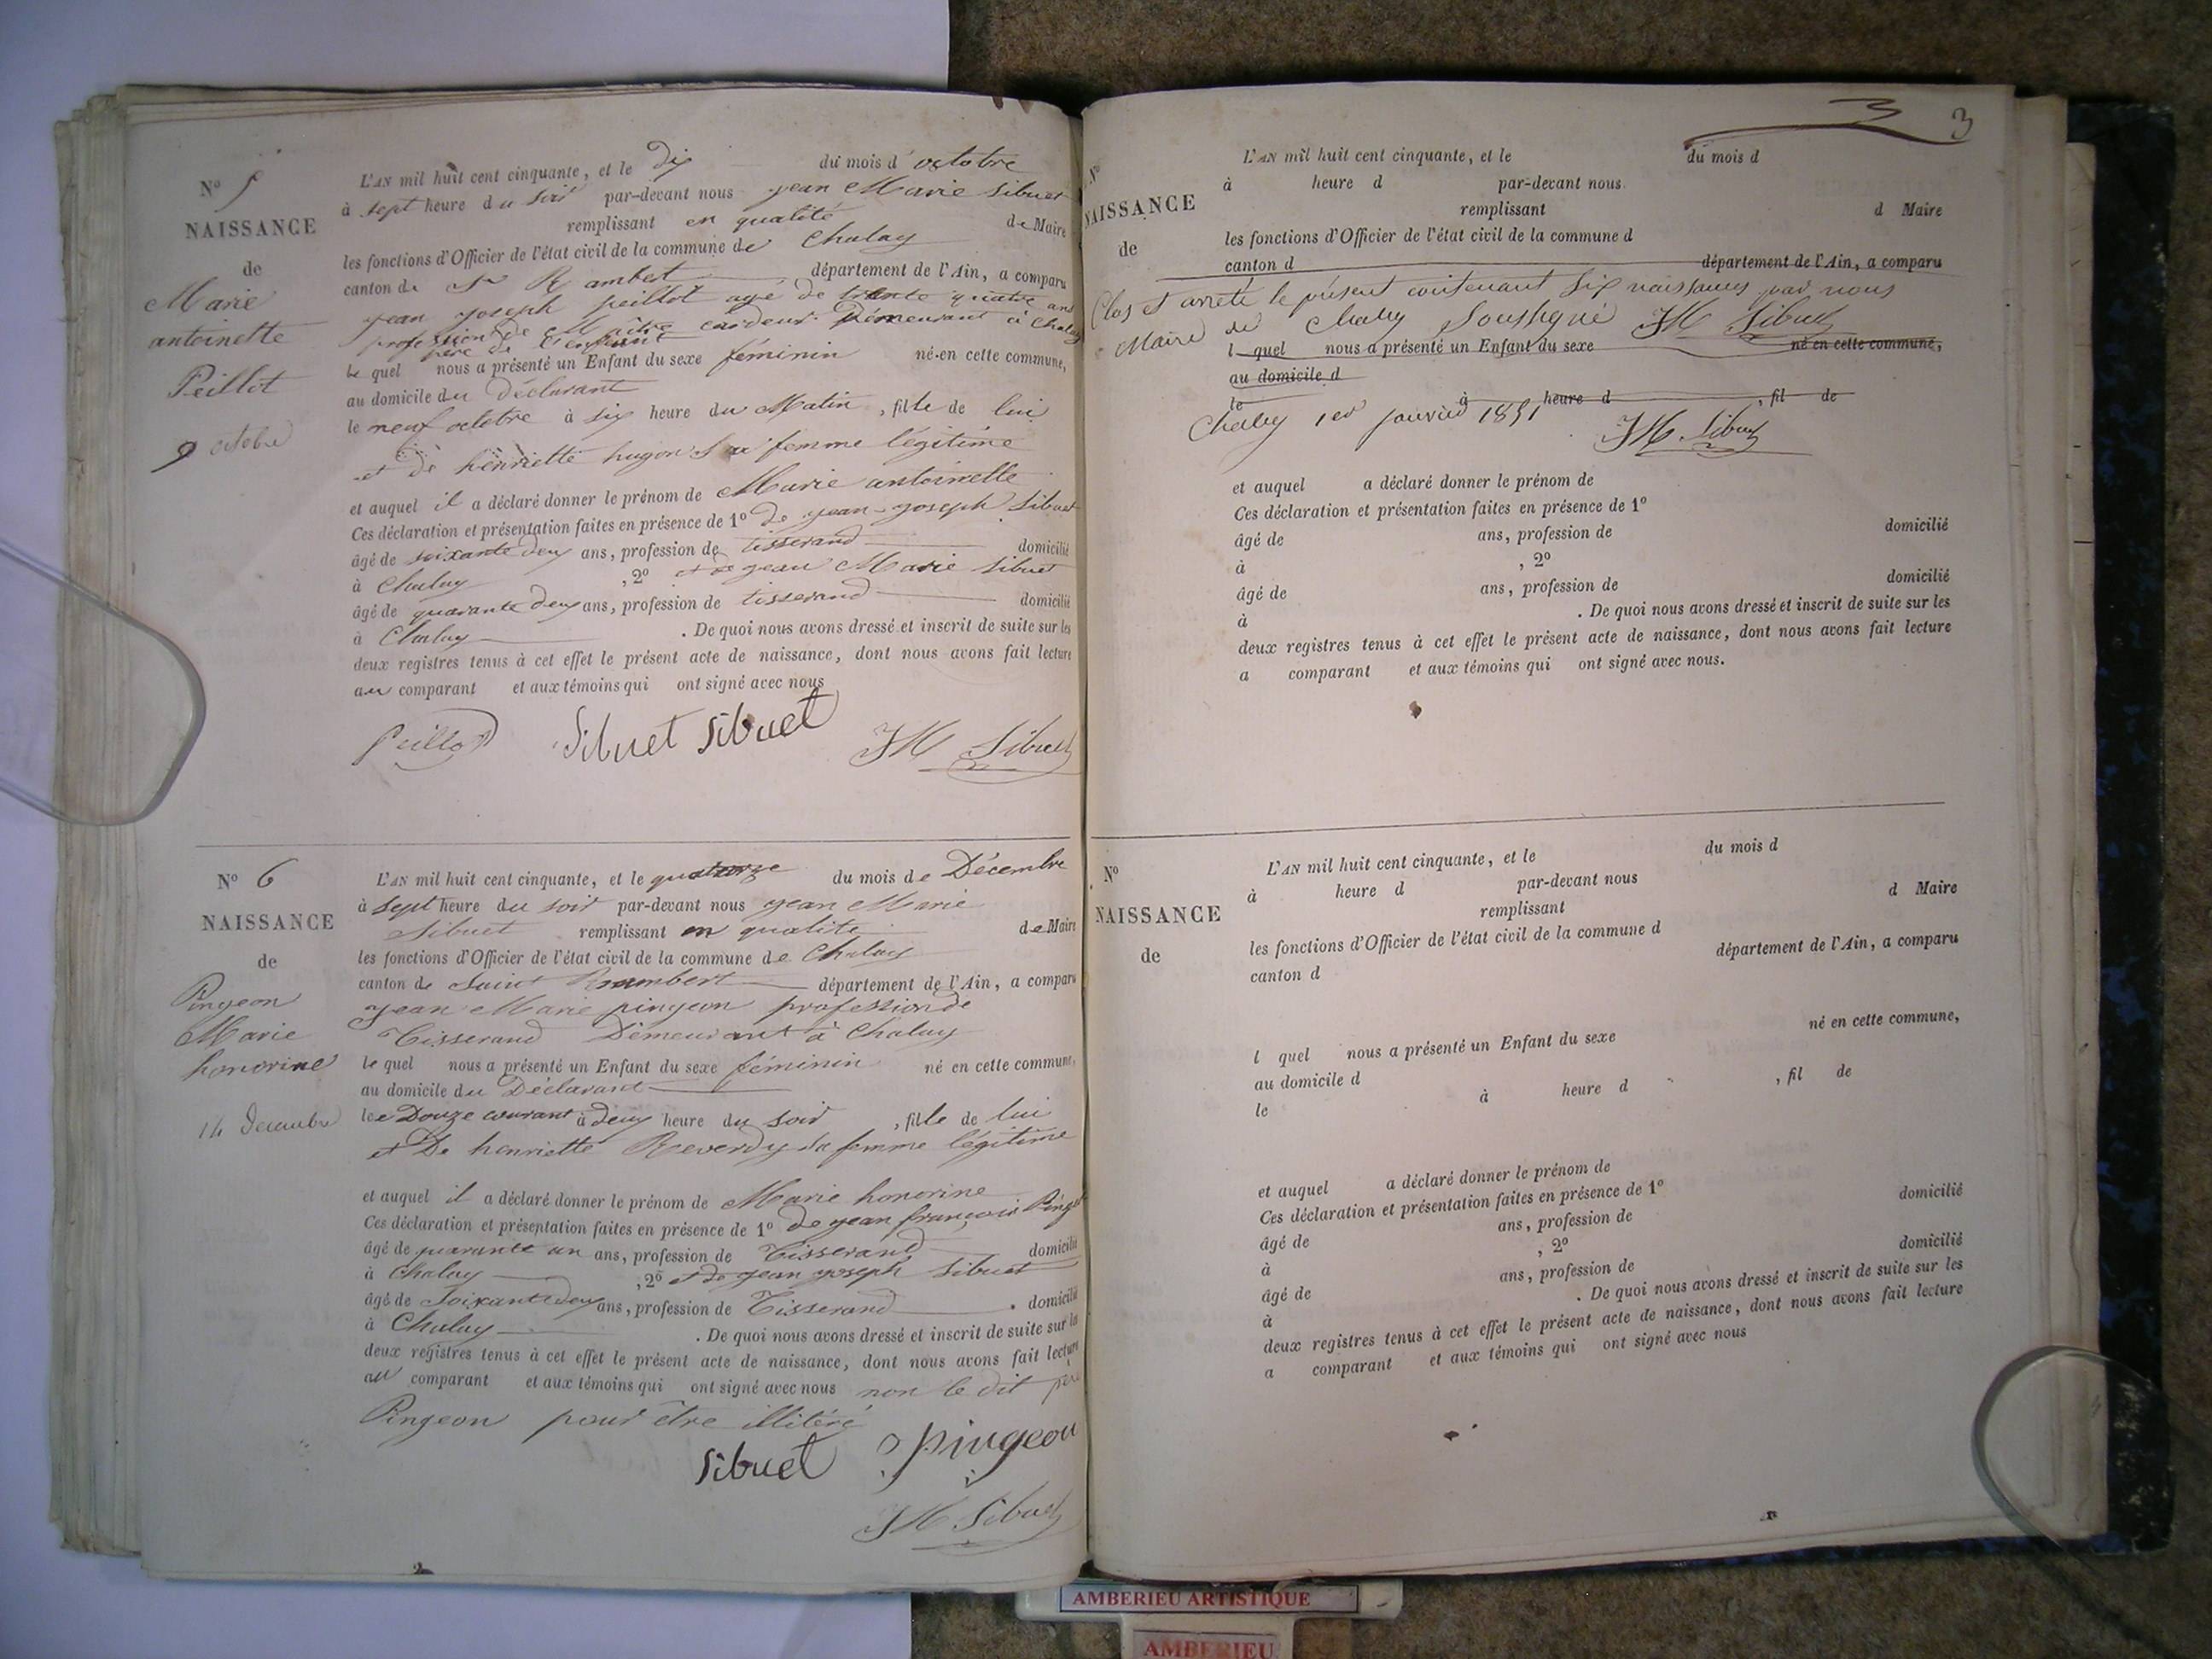 N° 5
NAISSANCE
de
Marie
antoinette
Peillot
9 octobre
L'AN mil huit cent cinquante, et le dix du mois d'octobre
à sept heure du soir par-devant nous jean Marie Sibuet
remplissant en qualité de Maire
les fonctions d'Officier de l'état civil de la commune de Chaley
canton de St Rambert département de l'Ain, a comparu
jean joseph peillot agé de trente quatre ans
profession de Maître cardeur Démeurant à Chaley
père de l'enfant
le quel nous a présenté un Enfant du sexe féminin né en cette commune,
au domicile du déclarant
le neuf octobre à six heure du Matin, fille de lui
et de henriette hugon Sa femme légitime
et auquel il a déclaré donner le prénom de Marie antoinette
Ces déclaration et présentation faites en présence de 1° De jean-joseph Sibuet
âgé de soixante deux ans, profession de tisserand domicilié
à Chaley, 2° et de jean Marie Sibuet
âgé de quarante deux ans, profession de tisserand domicilié
à Chaley. De quoi nous avons dressé et inscrit de suite sur les
deux registres tenus à cet effet le présent acte de naissance, dont nous avons fait lecture
au comparant et aux témoins qui ont signé avec nous
Peillot Sibuet Sibuet JM Sibuet
N° 6
NAISSANCE
de
Pingeon
Marie
honorine
14 Decembre
L'AN mil huit cent cinquante, et le quatorze du mois de Décembre
à sept heure du soir par-devant nous jean Marie
Sibuet remplissant en qualité de Maire
les fonctions d'Officier de l'état civil de la commune de Chaley
canton de Saint Rambert département de l'Ain, a comparu
jean Marie pingeon profession de
Tisserand Démeurant à Chaley
le quel nous a présenté un Enfant du sexe féminin né en cette commune,
au domicile du Déclarant
le Douze courant à deux heure du soir, fille de lui
et De henriette Reverdy sa femme légitime
et auquel il a déclaré donner le prénom de Marie honorine
Ces déclaration et présentation faites en présence de 1° De jean françois
âgé de quarante un ans, profession de Tisserand domicilié
à Chaley, 2° et de jean joseph Sibuet
âgé de Soixante deux ans, profession de Tisserand domicilié
à Chaley. De quoi nous avons dressé et inscrit de suite sur les
deux registres tenus à cet effet le présent acte de naissance, dont nous avons fait lecture
au comparant et aux témoins qui ont signé avec nous non le dit
Pingeon pour être illitéré
Sibuet pingeon
JM Sibuet
3
N°
NAISSANCE
de
L'AN mil huit cent cinquante, et le du mois d
à heure d par-devant nous
remplissant d Maire
les fonctions d'Officier de l'état civil de la commune d
canton d département de l'Ain, a comparu
Clos et arrêté le présent contenant six naissances par nous
Maire de Chaley Soussigné JM Sibuet
l quel nous a présenté un Enfant du sexe né en cette commune,
au domicile d
le à heure d, fil de
Chaley 1er janvier 1851 JM Sibuet
et auquel a déclaré donner le prénom de
Ces déclaration et présentation faites en présence de 1°
âgé de ans, profession de domicilié
à, 2°
âgé de ans, profession de domicilié
à. De quoi nous avons dressé et inscrit de suite sur les
deux registres tenus à cet effet le présent acte de naissance, dont nous avons fait lecture
a comparant et aux témoins qui ont signé avec nous.
N°
NAISSANCE
de
L'AN mil huit cent cinquante, et le du mois d
à heure d par-devant nous
remplissant d Maire
les fonctions d'Officier de l'état civil de la commune d
canton d département de l'Ain, a comparu
l quel nous a présenté un Enfant du sexe né en cette commune,
au domicile d
le à heure d, fil de
et auquel a déclaré donner le prénom de
Ces déclaration et présentation faites en présence de 1°
âgé de ans, profession de domicilié
à, 2°
âgé de ans, profession de domicilié
à. De quoi nous avons dressé et inscrit de suite sur les
deux registres tenus à cet effet le présent acte de naissance, dont nous avons fait lecture
a comparant et aux témoins qui ont signé avec nous
AMBERIEU ARTISTIQUE
AMBERIEU